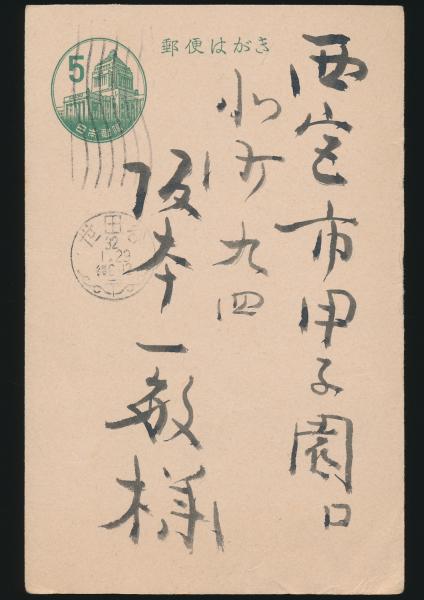 郵便はがき
5
日本郵便
西宮市甲子園口
北町九四
阪本一敏様
田
32
1.29